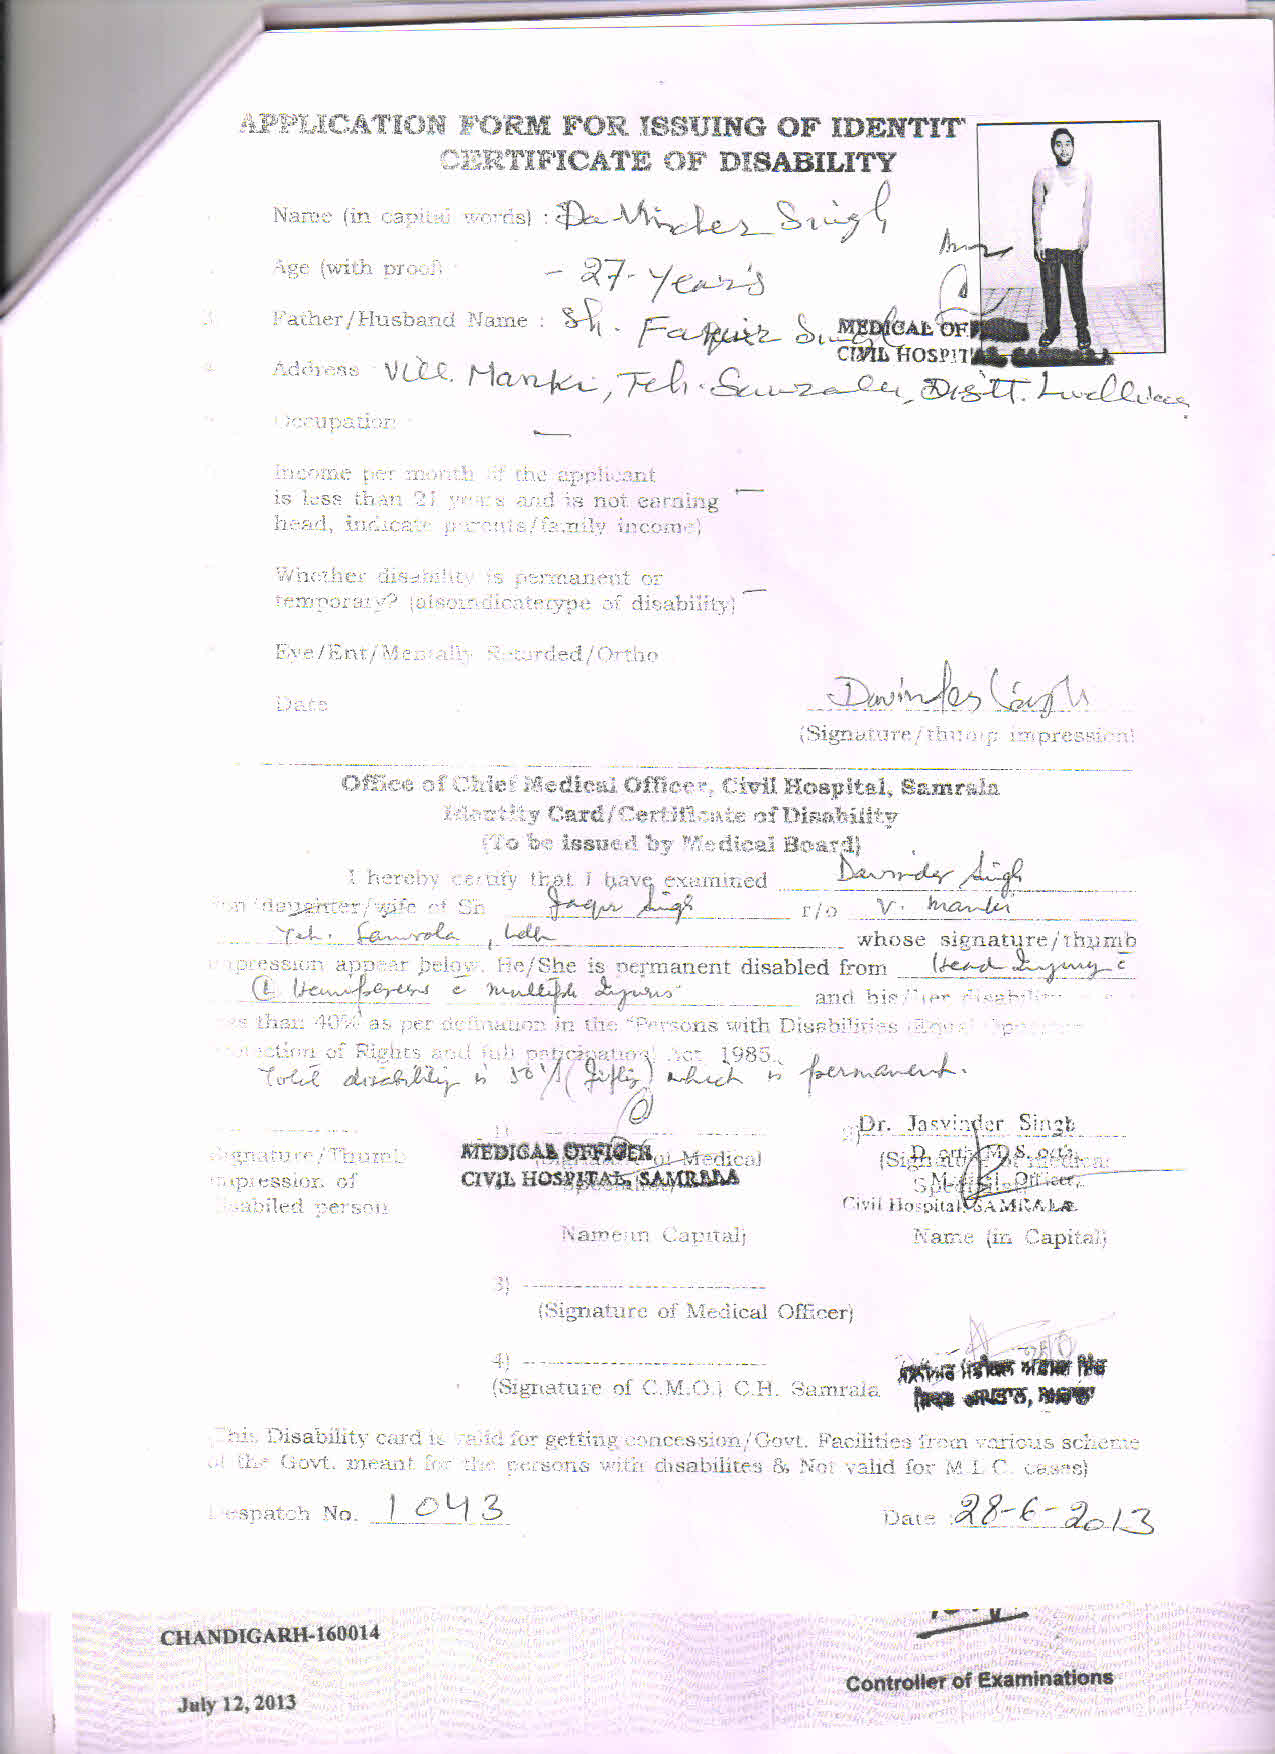 APPLICATION FORM FOR ISSUING OF IDENTIT
CERTIFICATE OF DISABILITY
Name (in capital words) : Davinder Singh
Age (with proof) : - 27- Years
3. Father/Husband Name : Sh. Faquir Singh
MEDICAL OF
CIVIL HOSPITAL
Address Vill. Manki, Teh. Samrala, Distt. Ludhiana
Occupation : —
Income per month (if the applicant
is less than 21 years and is not earning —
head, indicate parents/family income)
Whether disability is permanent or
temporary? (alsoindicatetype of disability) —
Eye/Ent/Mentally Retarded/Ortho
Date
Davinder Singh
(Signature/thump impression)
Office of Chief Medical Officer, Civil Hospital, Samrala
Identity Card/Certificate of Disability
(To be issued by Medical Board)
I hereby certify that I have examined Davinder Singh
son/daughter/wife of Sh Faqir Singh r/o V. Manki
Teh. Samrala, Ldh whose signature/thumb
impression appear below. He/She is permanent disabled from Head Injury c
Hemiparesis c multiple Injuries and his/her disability
less than 40% as per defination in the "Persons with Disabilities (Equal
Protection of Rights and full paticipation) Act 1985.
Total disability is 50% (fifty) which is permanent.
1)
2) Dr. Jasvinder Singh
D. orth, M.S. orth.
Medical Officer,
Civil Hospital, SAMRALA
MEDICAL OFFICER
CIVIL HOSPITAL, SAMRALA
Signature/Thumb
impression of
disabiled person
(Signature of Medical
Specialist)
(Signature of Medical
Name in Capital)
Name (in Capital)
3)
(Signature of Medical Officer)
4)
(Signature of C.M.O.) C.H. Samrala
This Disability card is valid for getting concession/Govt. Facilities from various scheme
of the Govt. meant for the persons with disabilites & Not valid for M L C. cases)
Despatch No. 1043
Date : 28-6-2013
CHANDIGARH-160014
July 12, 2013
Controller of Examinations